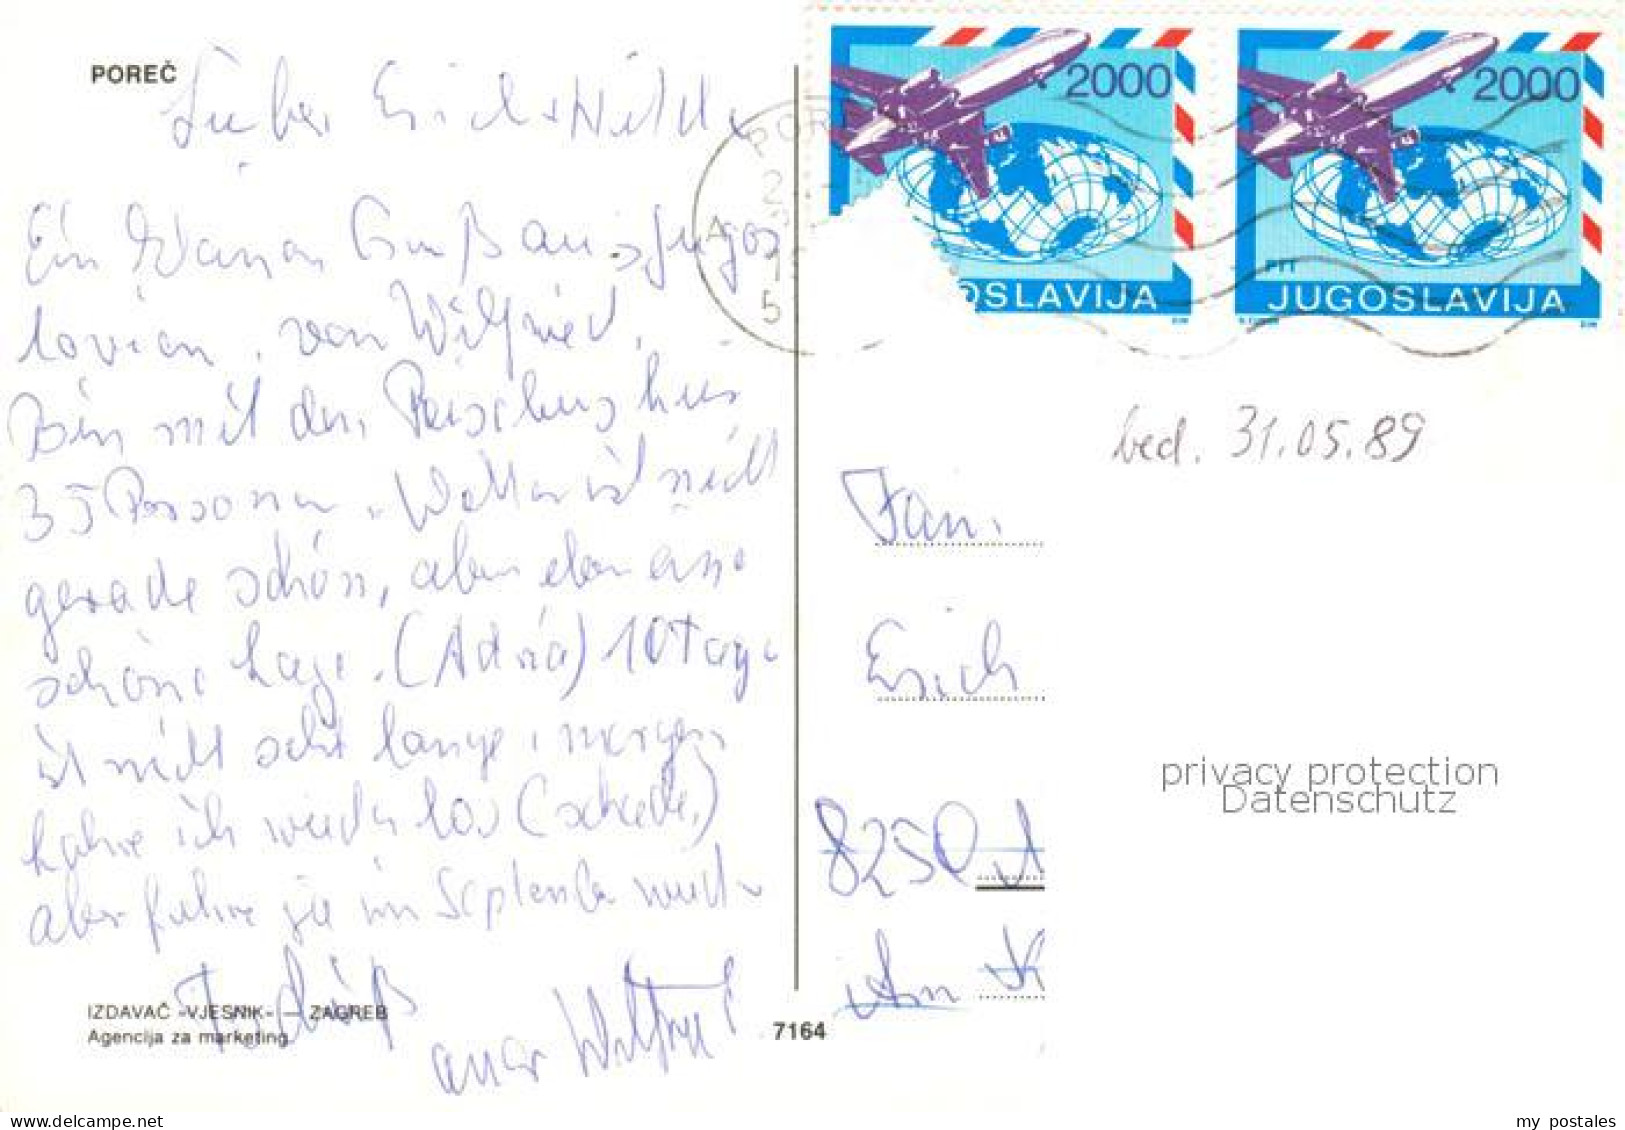 POREČ
Lieber Erich + Hilde
Ein Gruß aus Jugos
lavien, von Wilfried,
Bin mit dem Reisebus hier
35 Personen. Wetter ist nicht
gerade schön, aber eben eine
schöne Lage. (Adria) 10 Tage
ist nicht sehr lange, morgen
fahre ich wieder los (schade)
aber fahre ja im September wieder
Tschüß
euer Wilfried
IZDAVAČ »VJESNIK« — ZAGREB
Agencija za marketing
7164
2000
OSLAVIJA
2000
PTT
JUGOSLAVIJA
POR
5
bed. 31.05.89
Fam.
Erich
8250
Am K
privacy protection
Datenschutz
delcampe.net
my_postales